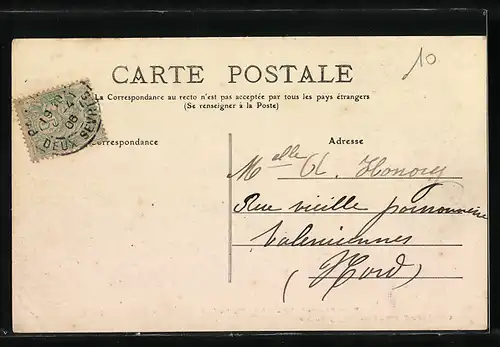 10
CARTE POSTALE
La Correspondance au recto n'est pas acceptée par tous les pays étrangers
(Se renseigner à la Poste)
19 -4
06
DEUX SEVRES
Correspondance
Adresse
Melle
Rue vieille poissonnerie
Valenciennes
(Nord)